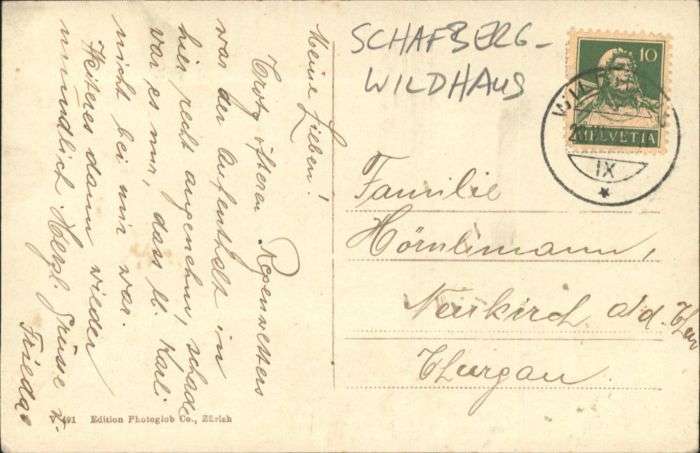 Meine Lieben!
Trotz öfteren Regenwetters
war der Aufenthalt in
hier recht angenehm, schade
war es nur, dass lb. Kari
nicht bei mir war.
Weiteres dann wieder
mündlich. Herzl. Grüsse v.
Frieda
V 491 Edition Photoglob Co., Zürich
SCHAFBERG-
WILDHAUS
10
HELVETIA
IX
Familie
Hörnlimann,
Neukirch a/d. Thur
Thurgau.